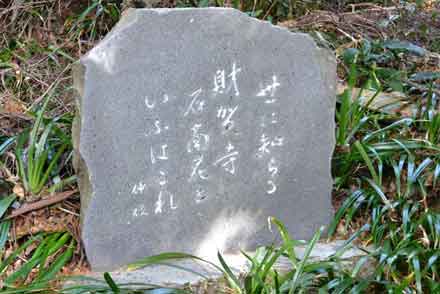 世に知らる
財賀寺
石南花と
いふはこれ